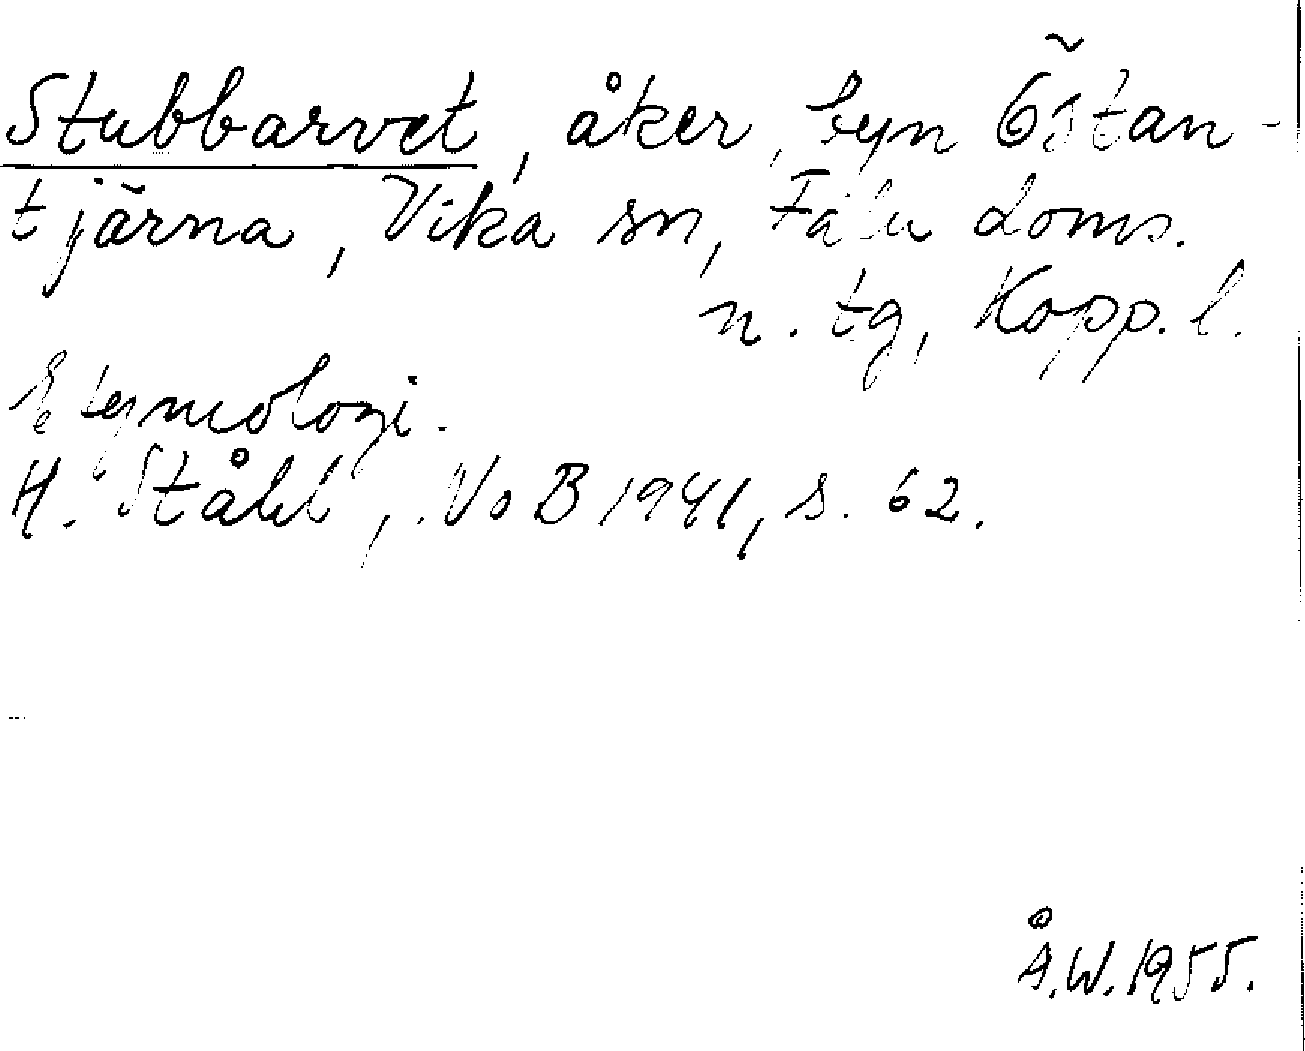 Stubbarvet, åker, byn Östan-
tjärna, Vika sn, Falu doms.
n. tg, Kopp. l.
Etymologi.
H. Ståhl, NoB 1941, s. 62.
Å.W. 1955.